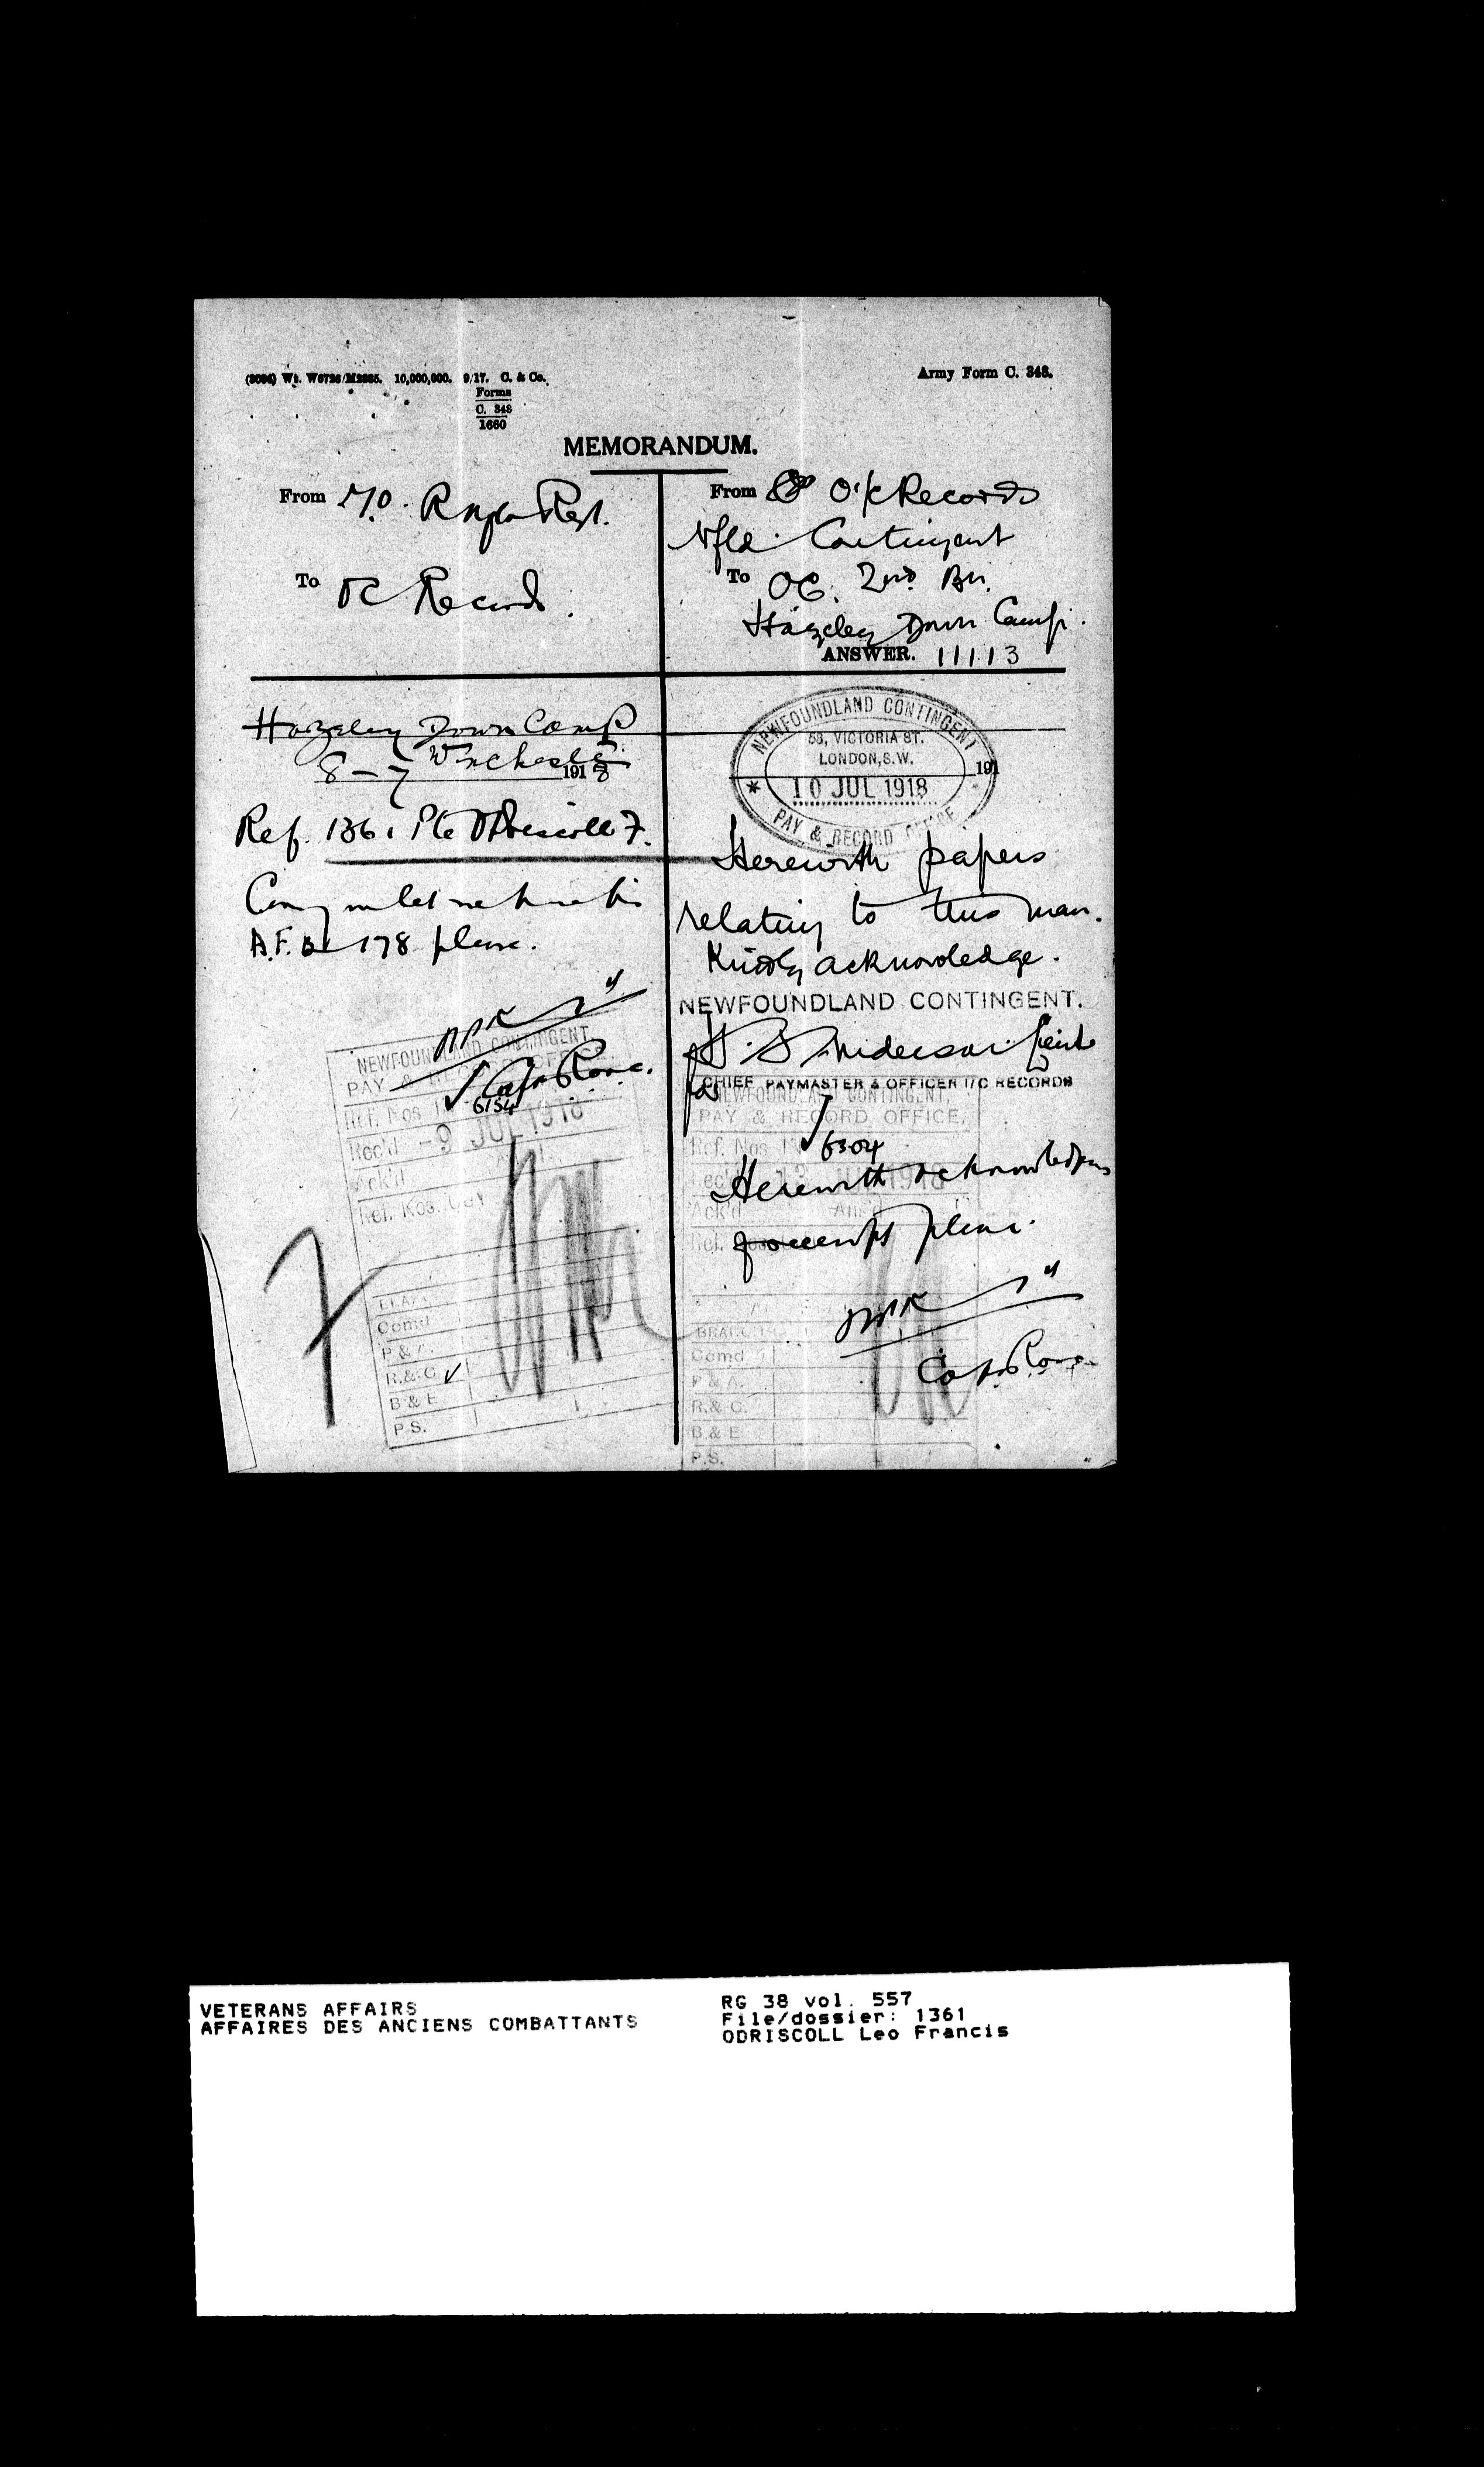 (3096) Wt. W6726/M2885. 10,000,000. 9/17. C. & Co.
Forms
C. 348
1660
Army Form C. 348.
MEMORANDUM.
From M.O. R Nfld Regt.
To OC Records.
Hazeley Down Camp
Winchester
8-7 1918
Ref. 1361 Pte O'Driscoll F.
Can you let me have his
A.F.B 178 please.
Capt RAMC.
NEWFOUNDLAND CONTINGENT
PAY & RECORD OFFICE
Ref. Nos.
6154
Rec'd -9 JUL 1918
Ack'd
Ref. Nos.
Comd
P & A.
R. & C. ✓
B & E
P.S.
From O i/c Records
Nfld. Contingent
To OC. 2nd Bn.
Hazeley Down Camp.
ANSWER. 11113
NEWFOUNDLAND CONTINGENT
58, VICTORIA ST.
LONDON, S.W.
191
10 JUL 1918
PAY & RECORD OFFICE
Herewith papers
relating to this man.
Kindly acknowledge.
NEWFOUNDLAND CONTINGENT.
Lieut
for CHIEF PAYMASTER & OFFICER I/C RECORDS
NEWFOUNDLAND CONTINGENT,
PAY & RECORD OFFICE,
Ref. Nos.
6304
Herewith acknowledgment
of receipt please.
Rec'd JUL 1918
Ack'd
Capt RAMC
BRANCH
Comd
P & A.
R. & C.
B & E
P.S.
VETERANS AFFAIRS
AFFAIRES DES ANCIENS COMBATTANTS
RG 38 vol. 557
File/dossier: 1361
ODRISCOLL Leo Francis